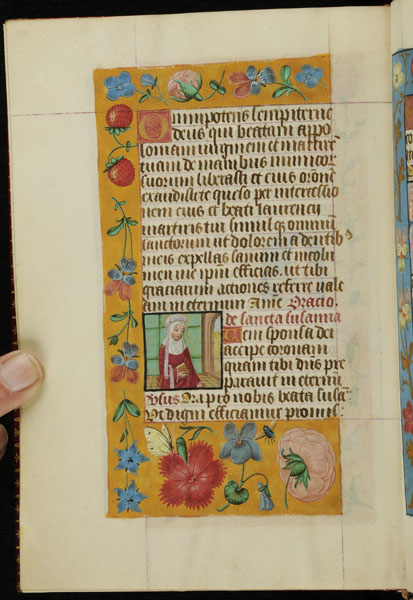 Omnipotens sempiterne
deus qui beatam appo
loniam virginem et martirē
tuam de manibus inimicor
suorum liberasti et eius oronē
exaudisti te queso per intercessio
nem eius et beati laurencii
martiris tui simul q; omniū
sanctorum ut dolorem a dentib;
meis expellas sanum et incolu
mem me ipm efficias ut tibi
graciarum actiones referre vale
am in eternum Amē Oracio
de sancta susanna
Ueni sponsa dei
accipe coronam
quam tibi dn̄s pre
paravit in eternū
Vsus Ora pro nobis beata susā
Ut digni efficiamur promis: